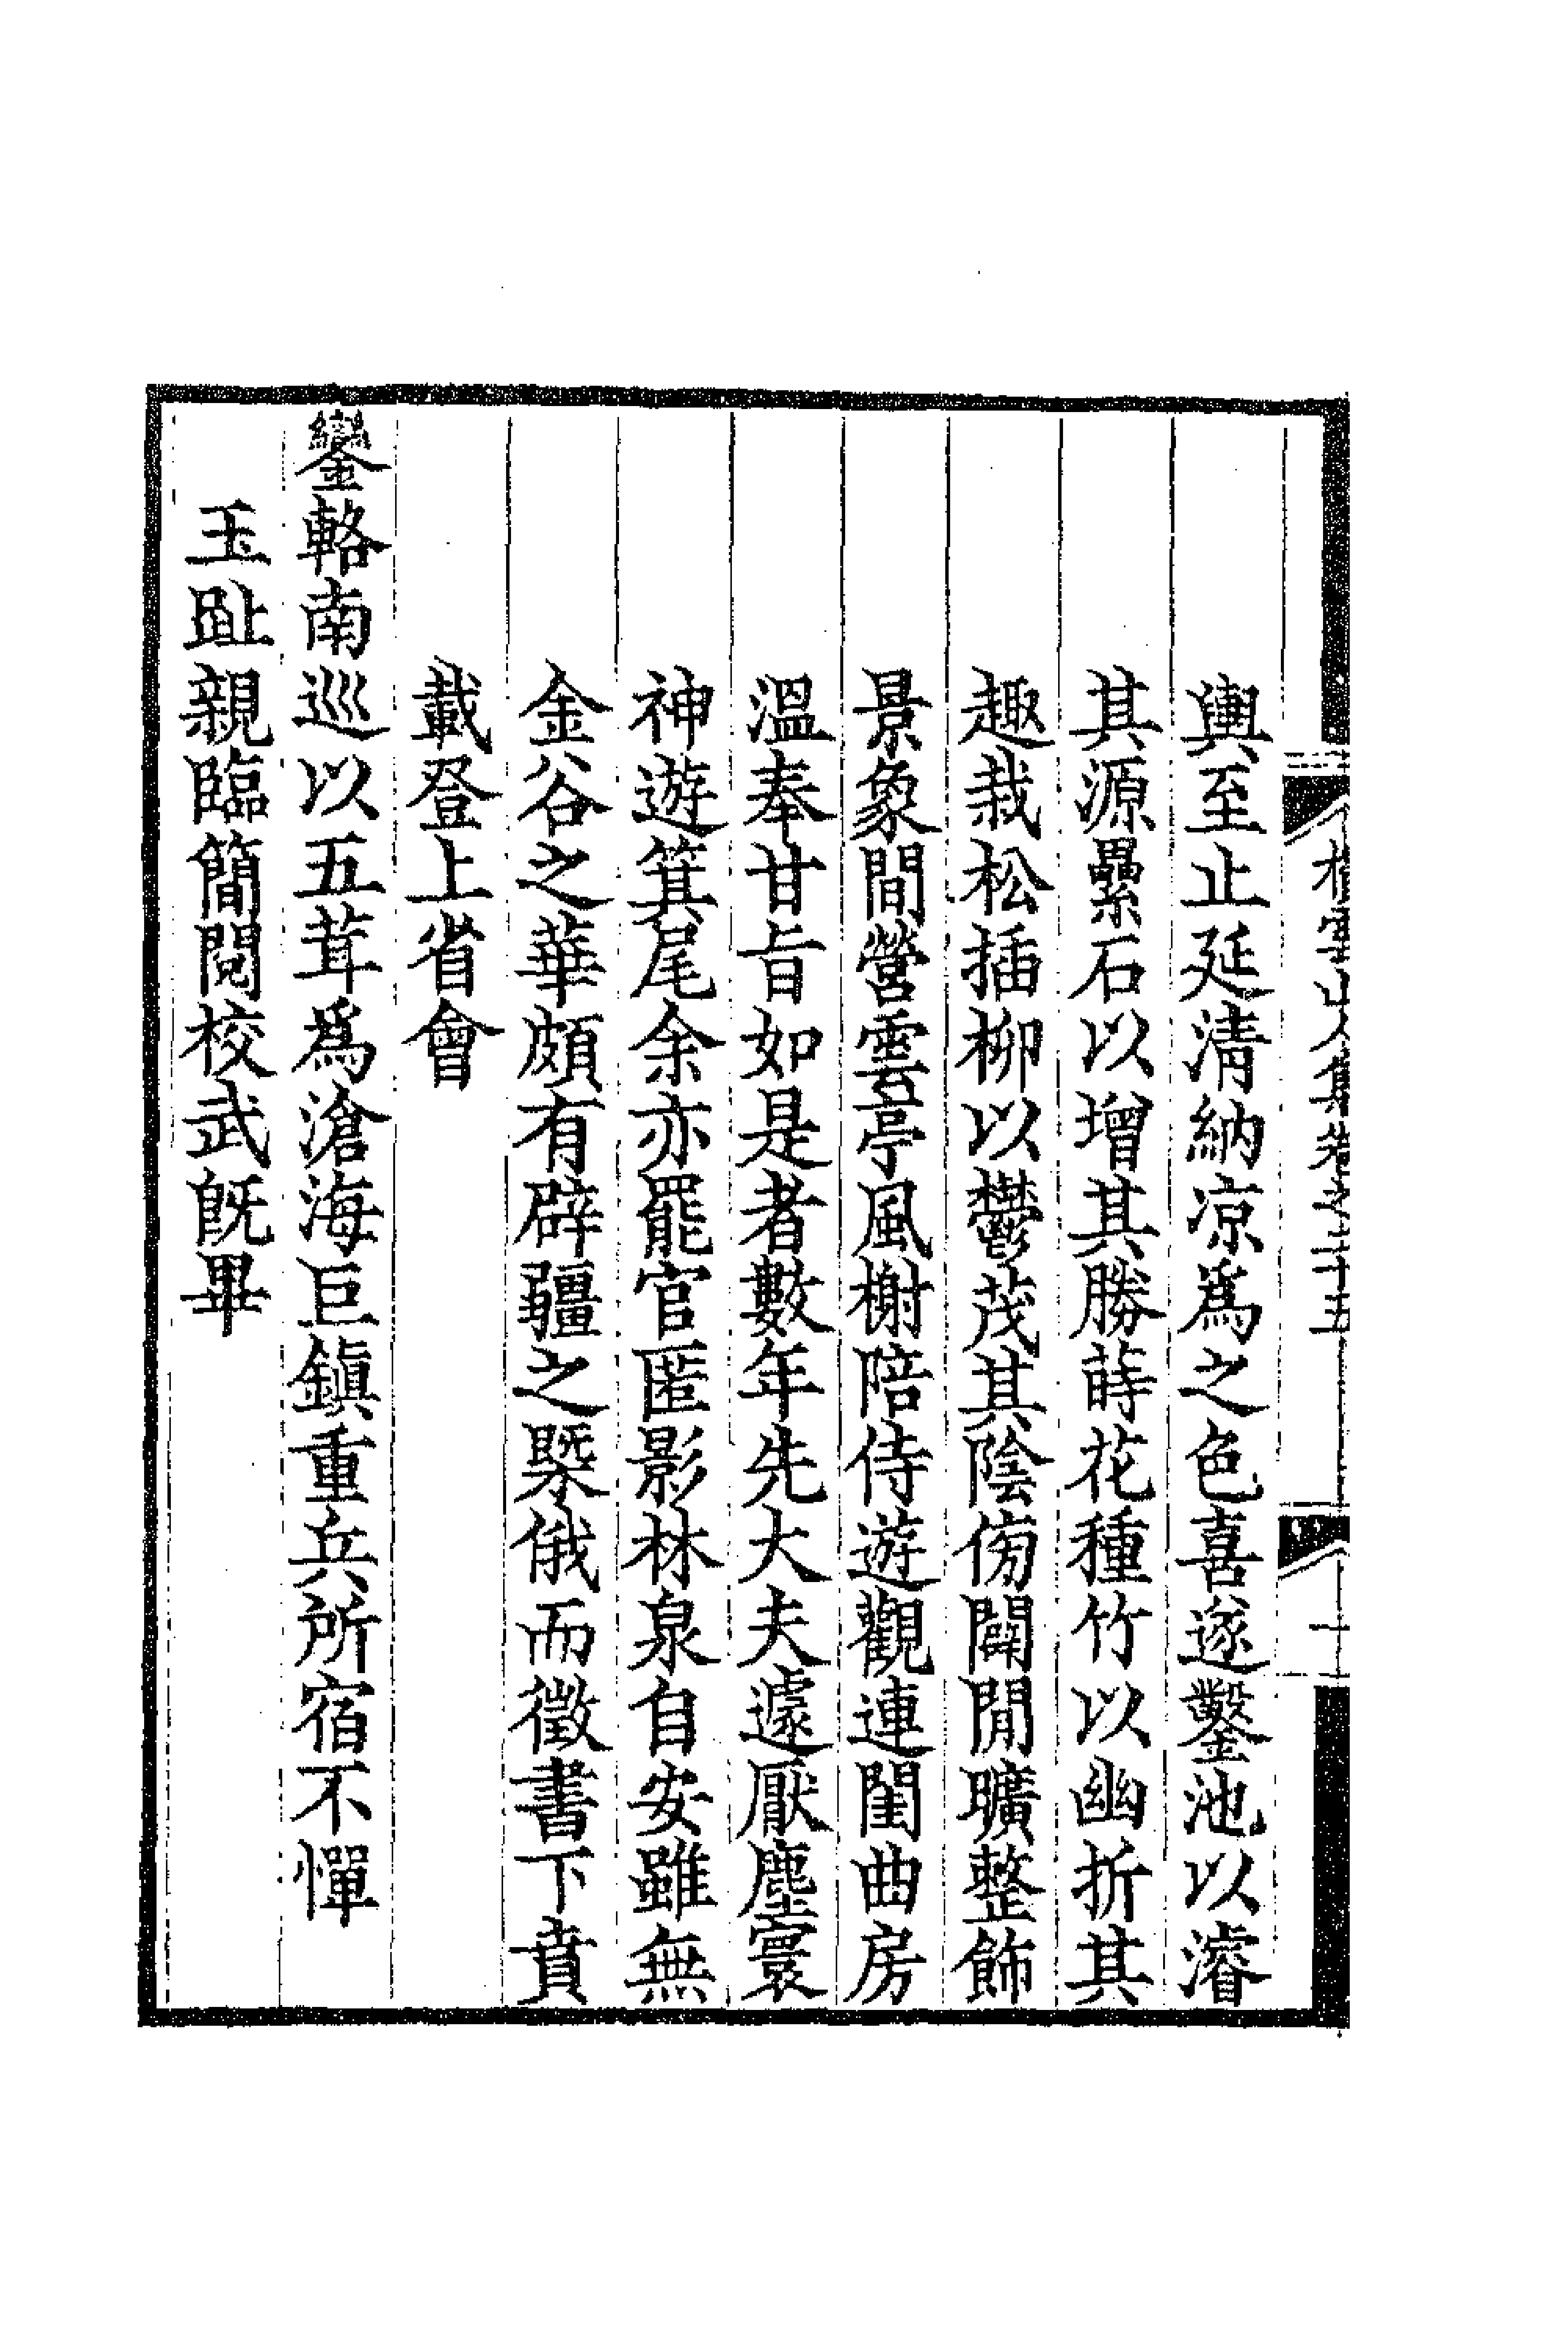 輿至止延清納凉爲之色喜遂鑿池以濬
其源纍石以增其勝蒔花種竹以幽折其
趣栽松插柳以鬱茂其陰傍闢閒曠整飾
景象間營雲亭風榭陪侍遊觀連闈曲房
溫奉甘旨如是者數年先大夫遽厭塵寰
神遊箕尾余亦罷官匿影林泉自安雖無
金谷之華頗有辟疆之槩俄而徵書下賁
載登上省會
鑾輅南巡以五茸爲滄海巨鎭重兵所宿不憚
玉趾親臨簡閱校武旣畢
山人集卷之二十五
一